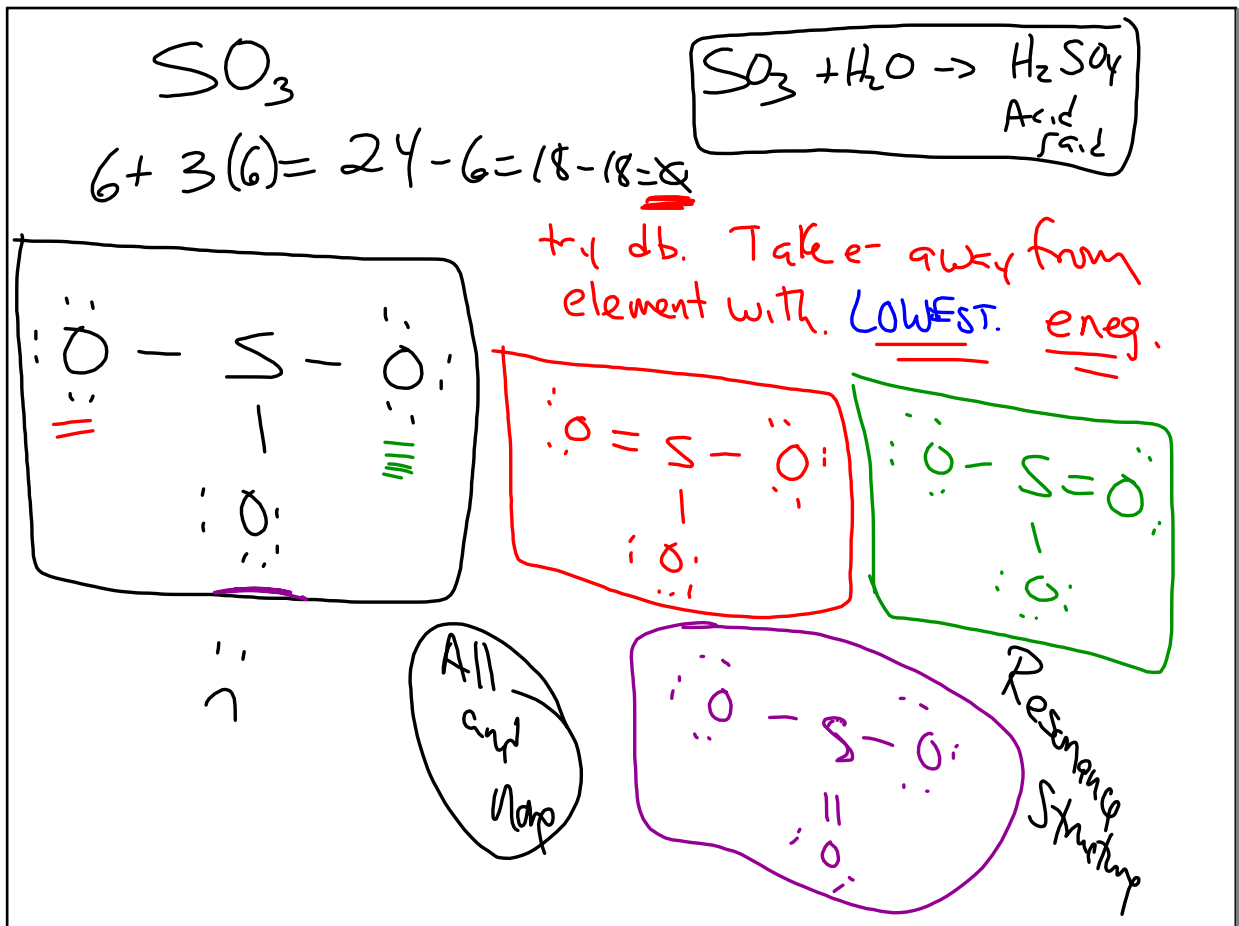 SO₃
SO₃ + H₂O → H₂SO₄
Acid
rain
6 + 3(6) = 24 - 6 = 18 - 18 = 0
try db. Take e- away from
element with. LOWEST. eneg.
O - S - O
|
O
O = S - O
|
O
O - S = O
|
O
All
and
None
O - S - O
||
O
Resonance
Structure